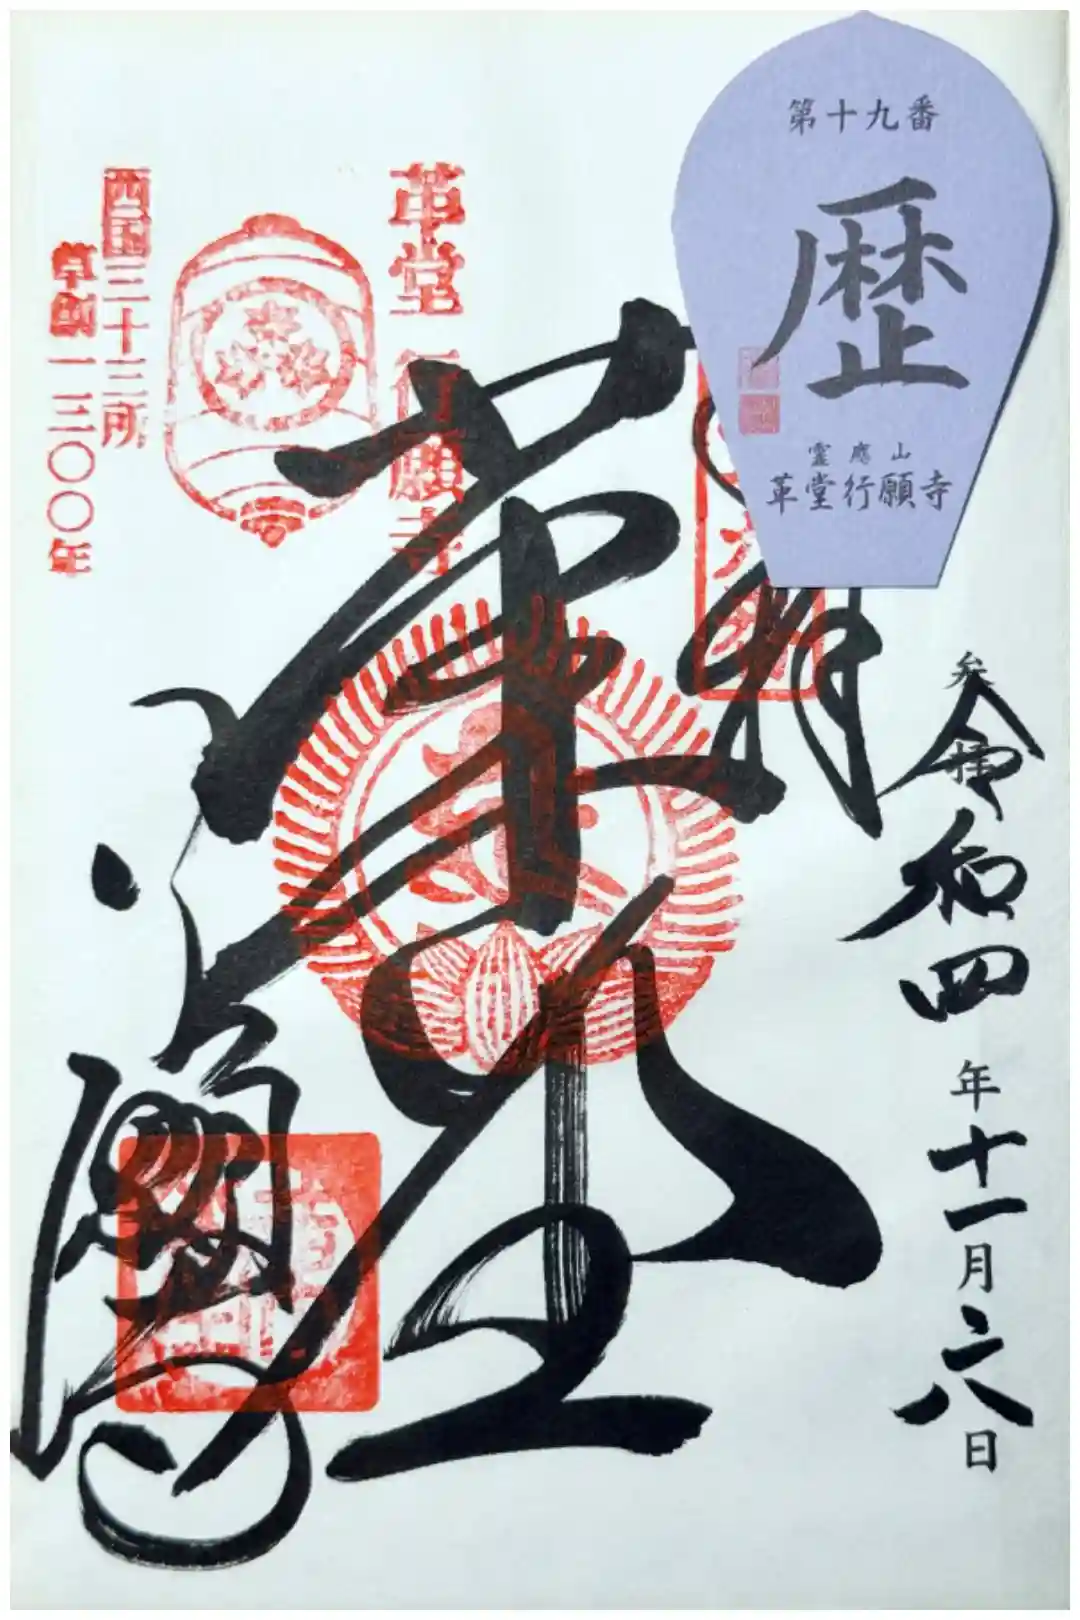 第十九番
歴
靈應山
革堂行願寺
奉拝
令和四年十一月二八日
革堂
革堂 行願寺
西国三十三所
草創一三〇〇年